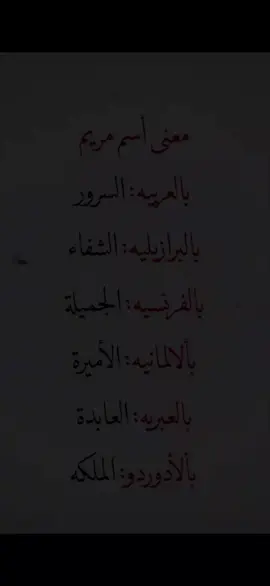 معنى أسم مريم
بالعربيه : السرور
بالبرازيليه : الشفاء
بالفرنسيه : الجميلة
بألالمانيه : الأميرة
بالعبريه : العابدة
بألأدوردو : الملكه